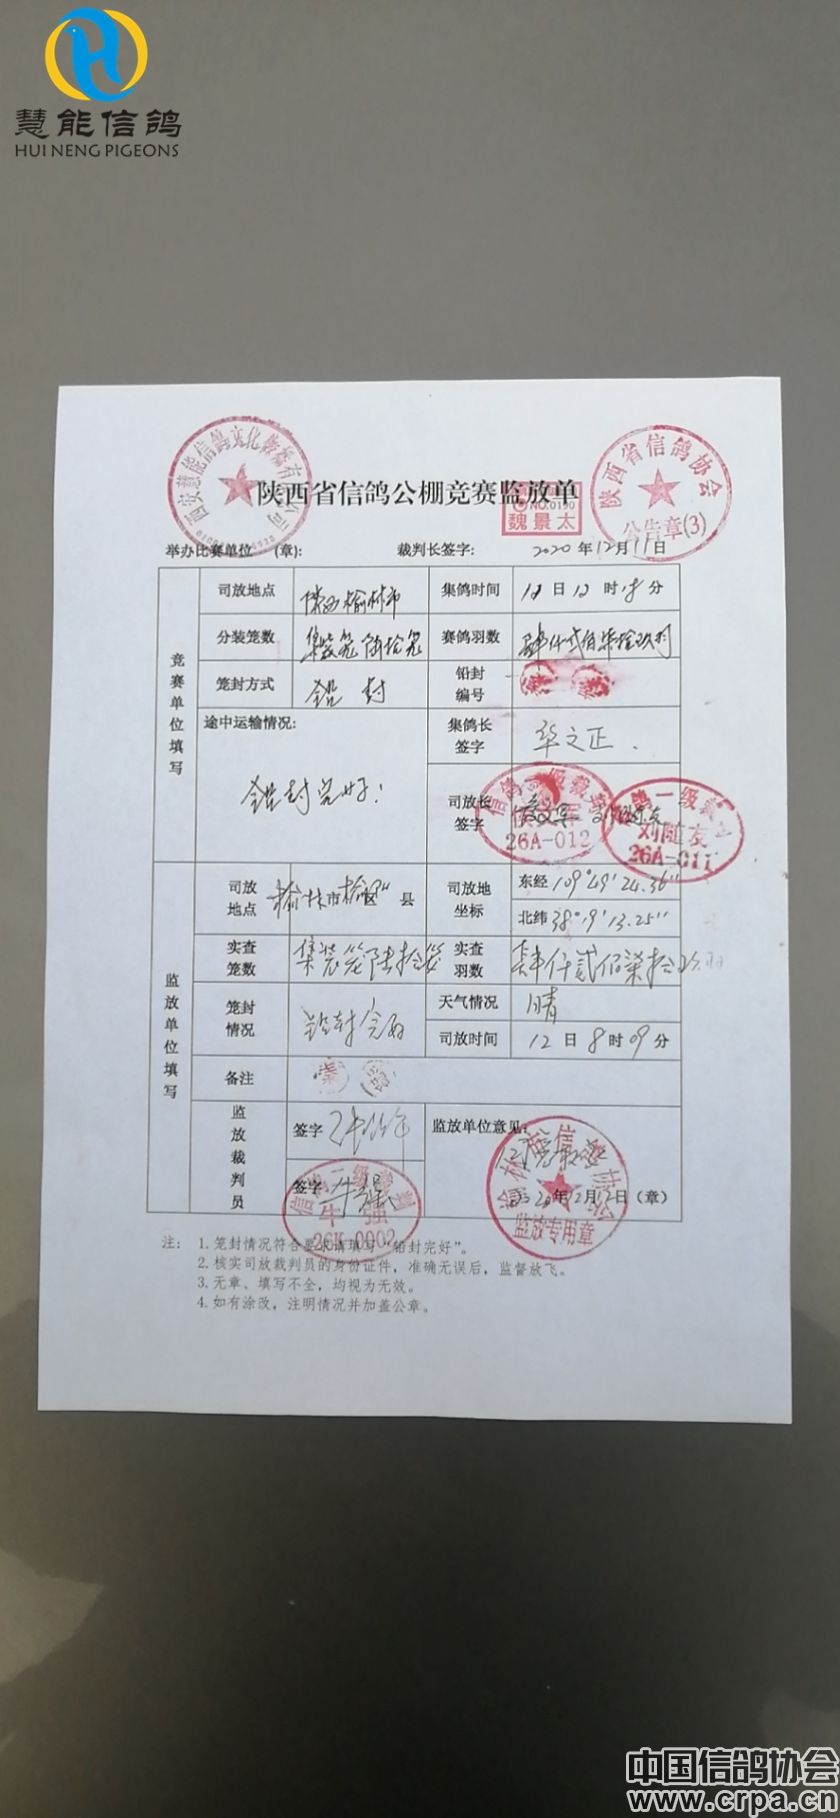 慧能信鸽
HUI NENG PIGEONS
陕西省信鸽公棚竞赛监放单
西安慧能信鸽文化
陕西省信鸽协会
公告章(3)
NO.0190
魏景太
举办比赛单位 (章): 裁判长签字: 2020年12月11日
竞赛单位填写
司放地点 陕西榆林市 集鸽时间 日12时18分
分装笼数 集装笼陆拾笼 赛鸽羽数 肆仟贰佰柒拾玖羽
笼封方式 铅封 铅封编号
途中运输情况: 铅封完好! 集鸽长签字 华之正
司放长签字
26A-012
信鸽一级裁判
刘随友
26A-011
监放单位填写
司放地点 榆林市榆 区 县 司放地坐标 东经 109°49'24.36"
北纬 38°19'13.25"
实查笼数 集装笼陆拾笼 实查羽数 肆仟贰佰柒拾
笼封情况 铅封完好 天气情况 晴
司放时间 12日8时09分
备注
监放裁判员 签字 监放单位意见:
签字 牛强 2020年12月12日(章)
信鸽一级裁判
牛强
26K-0002
监放专用章
注: 1.笼封情况符合要求请填写“铅封完好”。
2.核实司放裁判员的身份证件，准确无误后，监督放飞。
3.无章、填写不全，均视为无效。
4.如有涂改，注明情况并加盖公章。
中国信鸽协会
www.crpa.cn